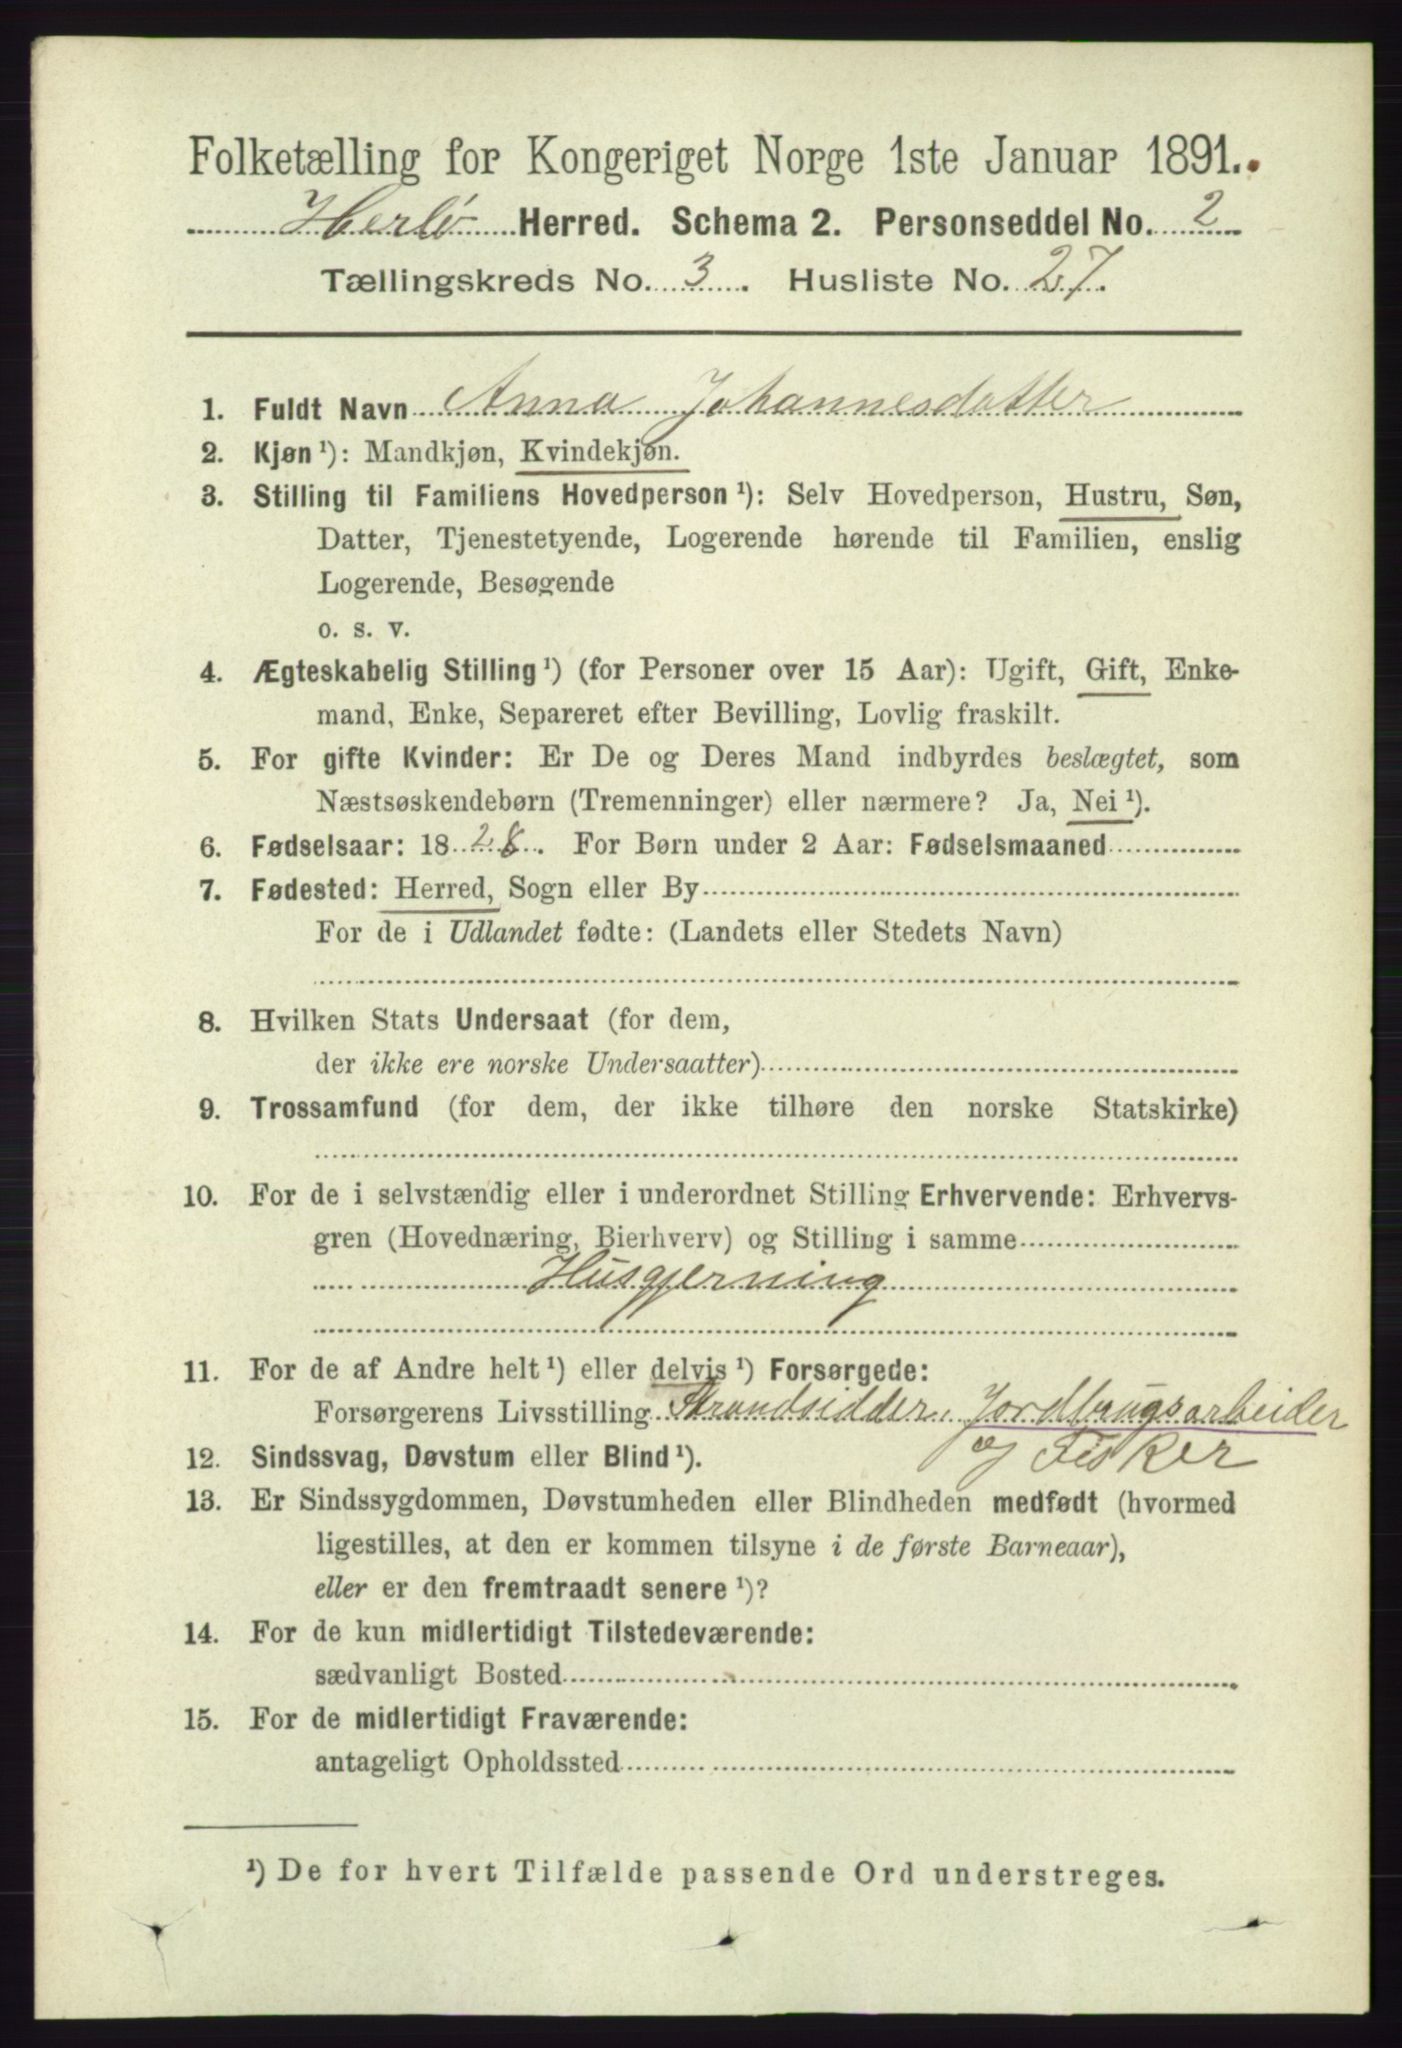 Folketælling for Kongeriget Norge 1ste Januar 1891.
Herlø Herred. Schema 2. Personseddel No. 2
Tællingskreds No. 3. Husliste No. 27.
1. Fuldt Navn Anna Johannesdatter
2. Kjøn¹): Mandkjøn, Kvindekjøn.
3. Stilling til Familiens Hovedperson¹): Selv Hovedperson, Hustru, Søn,
Datter, Tjenestetyende, Logerende hørende til Familien, enslig
Logerende, Besøgende
o. s. v.
4. Ægteskabelig Stilling¹) (for Personer over 15 Aar): Ugift, Gift, Enke-
mand, Enke, Separeret efter Bevilling, Lovlig fraskilt.
5. For gifte Kvinder: Er De og Deres Mand indbyrdes beslægtet, som
Næstsøskendebørn (Tremenninger) eller nærmere? Ja, Nei¹).
6. Fødselsaar: 1828. For Børn under 2 Aar: Fødselsmaaned
7. Fødested: Herred, Sogn eller By
For de i Udlandet fødte: (Landets eller Stedets Navn)
8. Hvilken Stats Undersaat (for dem,
der ikke ere norske Undersaatter)
9. Trossamfund (for dem, der ikke tilhøre den norske Statskirke)
10. For de i selvstændig eller i underordnet Stilling Erhvervende: Erhvervs-
gren (Hovednæring, Bierhverv) og Stilling i samme
Husgjerning
11. For de af Andre helt¹) eller delvis¹) Forsørgede:
Forsørgerens Livsstilling Strandsidder, Jordbrugsarbeider
og Fisker
12. Sindssvag, Døvstum eller Blind¹).
13. Er Sindssygdommen, Døvstumheden eller Blindheden medfødt (hvormed
ligestilles, at den er kommen tilsyne i de første Barneaar),
eller er den fremtraadt senere¹)?
14. For de kun midlertidigt Tilstedeværende:
sædvanligt Bosted
15. For de midlertidigt Fraværende:
antageligt Opholdssted
¹) De for hvert Tilfælde passende Ord understreges.